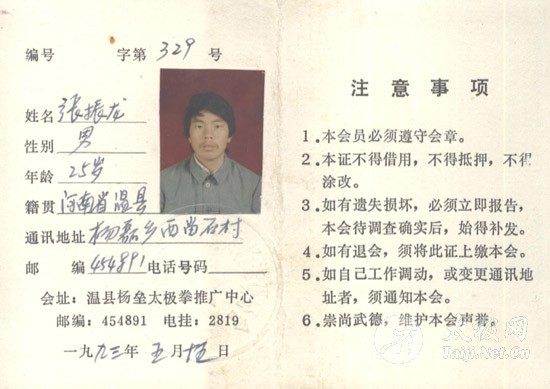 编号 字第 329 号
姓名 张振龙
性别 男
年龄 25岁
籍贯 河南省温县
通讯地址 杨磊乡西尚石村
邮 编 454891 电话号码
会址：温县杨垒太极拳推广中心
邮编：454891 电挂：2819
一九九三年 五月十五日
注意事项
1．本会员必须遵守会章。
2．本证不得借用，不得抵押，不得
涂改。
3．如有遗失损坏，必须立即报告，
本会待调查确实后，始得补发。
4．如有退会，须将此证上缴本会。
5．如自己工作调动，或变更通讯地
址者，须通知本会。
6．崇尚武德，维护本会声誉。
太极网
Taiji.Net.Cn